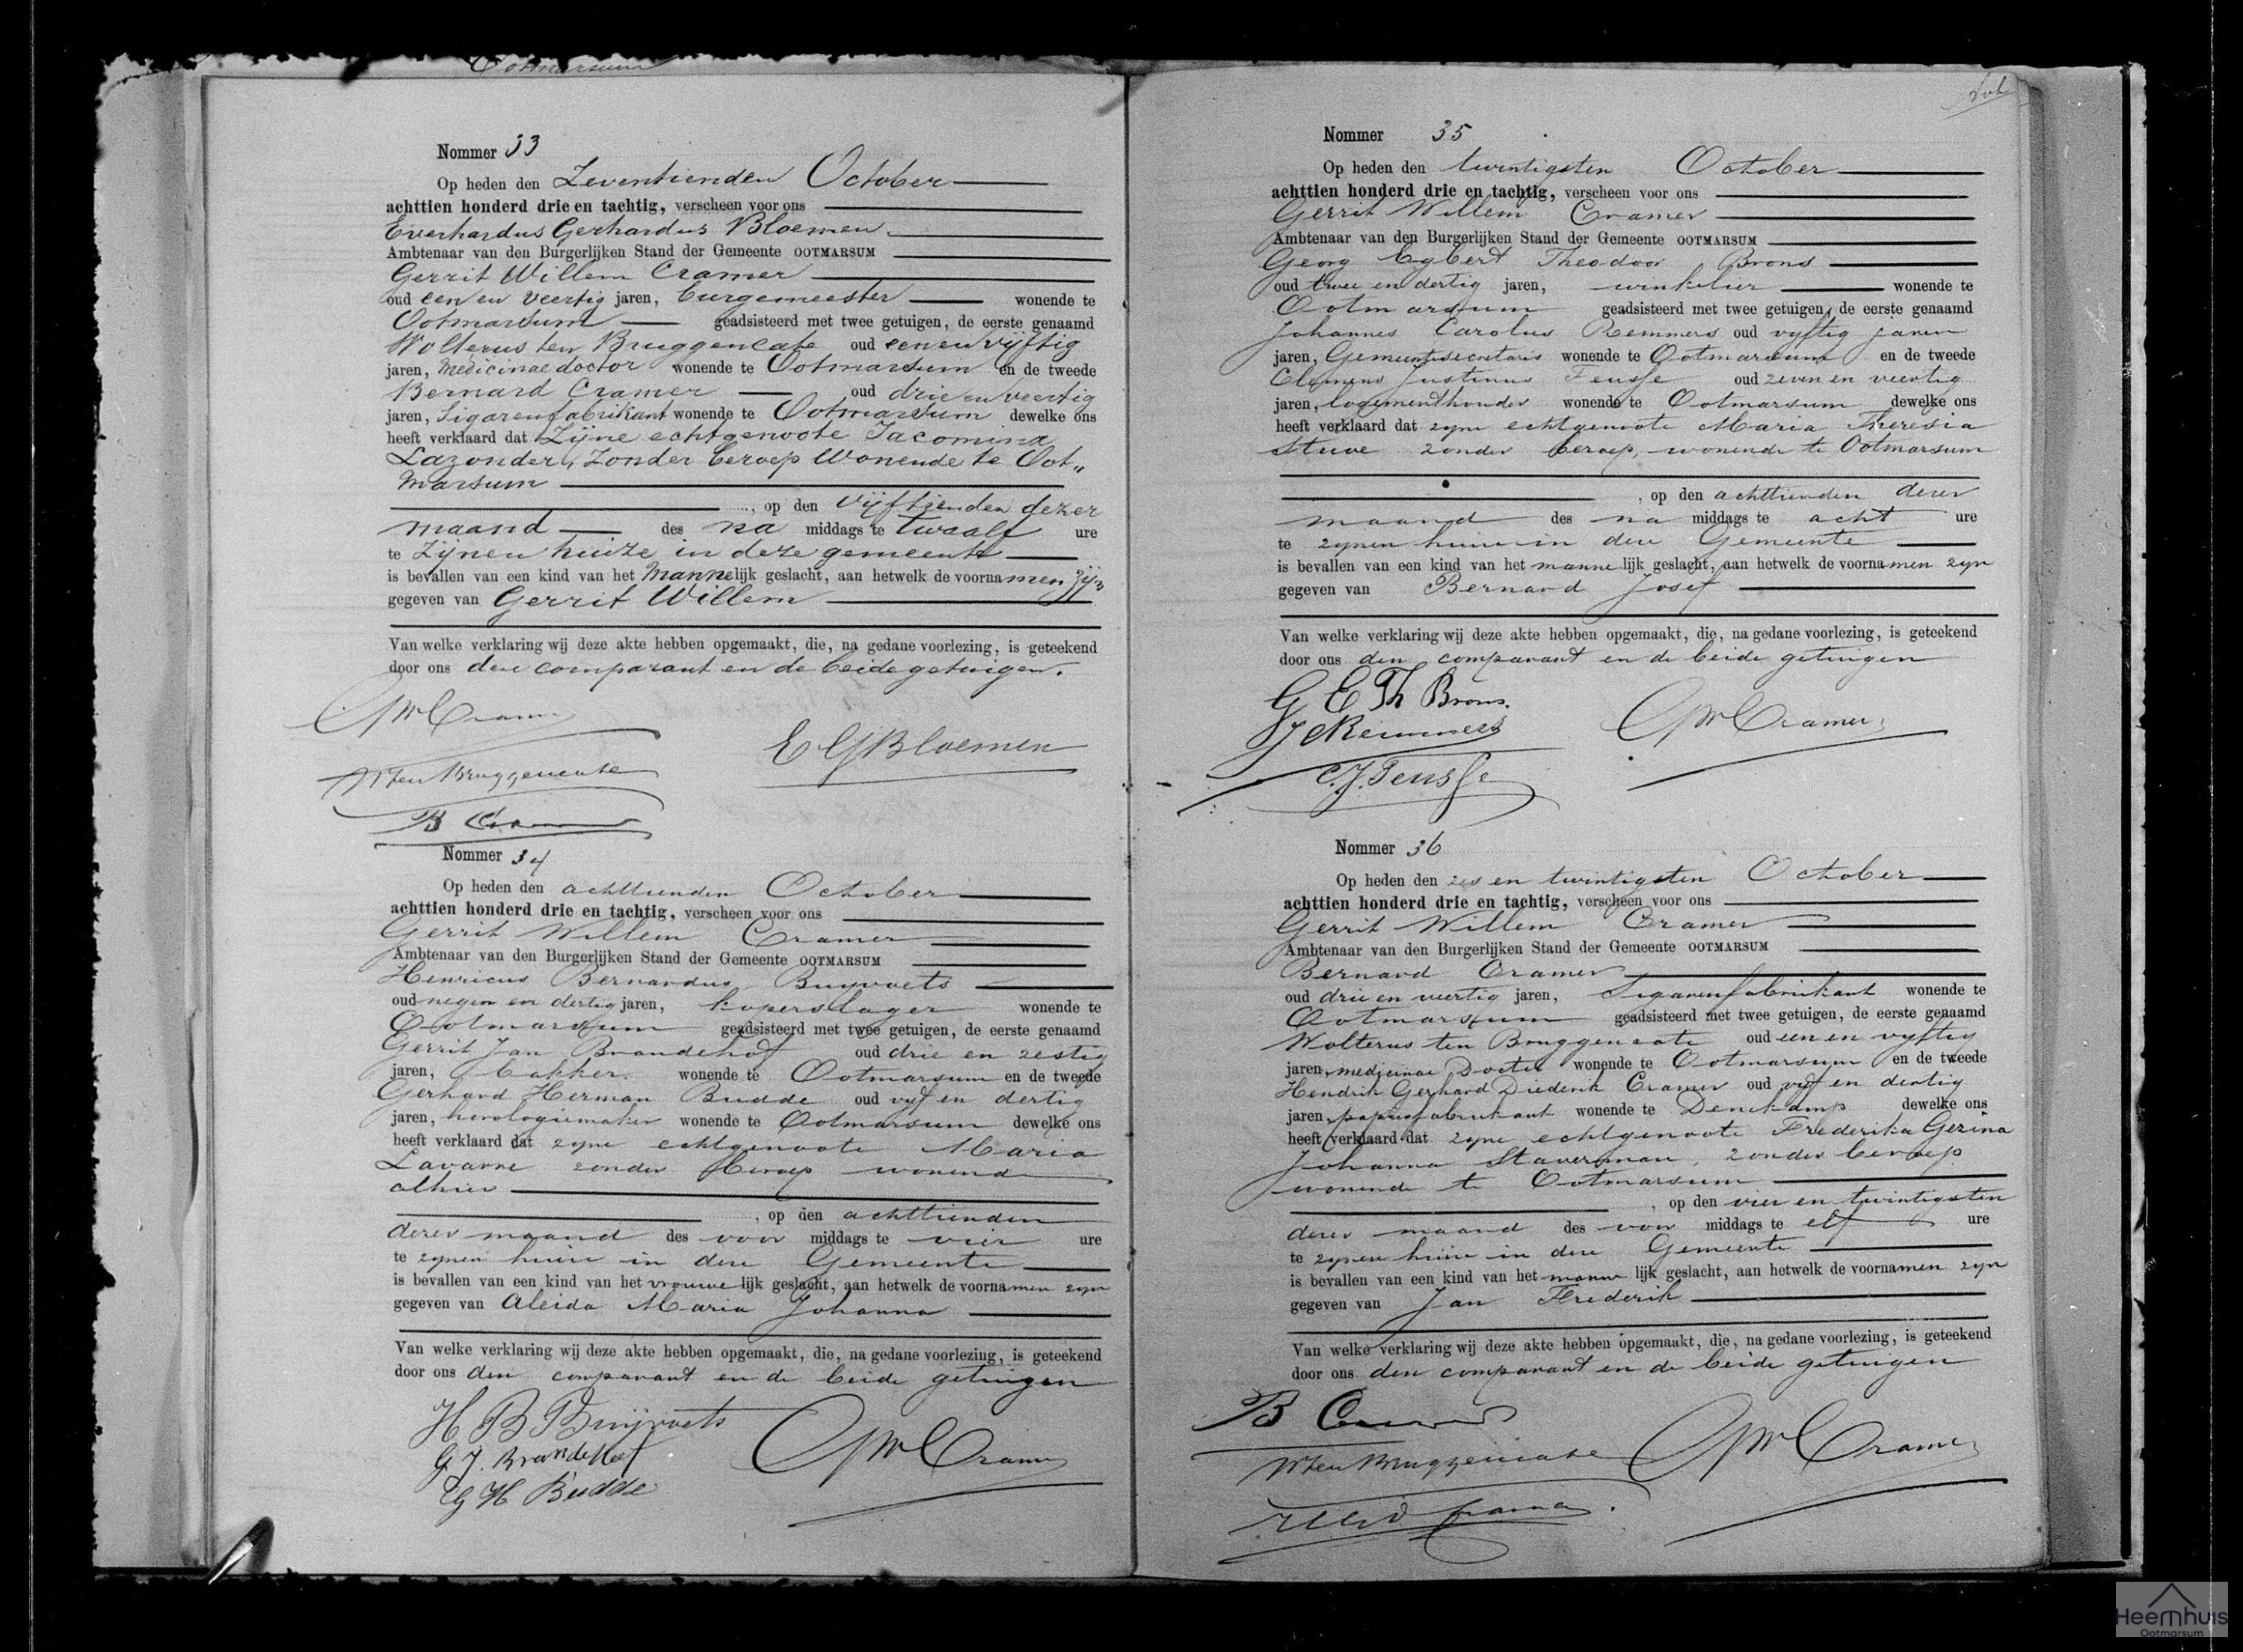 Ootmarsum
Nommer 33
Op heden den Zeventienden October
achttien honderd drie en tachtig, verscheen voor ons
Everhardus Gerhardus Bloemen
Ambtenaar van den Burgerlijken Stand der Gemeente OOTMARSUM
Gerrit Willem Cramer
oud een en veertig jaren, burgemeester wonende te
Ootmarsum geadsisteerd met twee getuigen, de eerste genaamd
Wolterus ten Bruggencate oud een en vijftig
jaren, Medicinae doctor wonende te Ootmarsum en de tweede
Bernard Cramer oud drie en veertig
jaren, Sigarenfabrikant wonende te Ootmarsum dewelke ons
heeft verklaard dat Zijne echtgenoote Jacomina
Lazonder, Zonder beroep Wonende te Oot„
marsum
, op den Vijftienden dezer
maand des na middags te twaalf ure
te Zijnen huize in deze gemeente
is bevallen van een kind van het Mannelijk geslacht, aan hetwelk de voornamen zijn
gegeven van Gerrit Willem
Van welke verklaring wij deze akte hebben opgemaakt, die, na gedane voorlezing, is geteekend
door ons den comparant en de beide getuigen.
GWCramer
E G Bloemen
WtenBruggencate
B Cramer
Nommer 34
Op heden den achttienden October
achttien honderd drie en tachtig, verscheen voor ons
Gerrit Willem Cramer
Ambtenaar van den Burgerlijken Stand der Gemeente OOTMARSUM
Henricus Bernardus Buyvoets
oud negen en dertig jaren, koperslager wonende te
Ootmarsum geadsisteerd met twee getuigen, de eerste genaamd
Gerrit Jan Brandehof oud drie en zestig
jaren, bakker wonende te Ootmarsum en de tweede
Gerhard Herman Budde oud vyf en dertig
jaren, horologiemaker wonende te Ootmarsum dewelke ons
heeft verklaard dat zyne echtgenoote Maria
Lavarre zonder beroep wonend
alhier
, op den achttienden
dezer maand des voor middags te vier ure
te zynen huize in deze Gemeente
is bevallen van een kind van het vrouwelijk geslacht, aan hetwelk de voornamen zyn
gegeven van Aleida Maria Johanna
Van welke verklaring wij deze akte hebben opgemaakt, die, na gedane voorlezing, is geteekend
door ons den comparant en de beide getuigen
H B Buijvoets
GWCramer
G J. Brandehof
G H Budde
Nommer 35
Op heden den twintigsten October
achttien honderd drie en tachtig, verscheen voor ons
Gerrit Willem Cramer
Ambtenaar van den Burgerlijken Stand der Gemeente OOTMARSUM
Georg Egbert Theodoor Brons
oud twee en dertig jaren, winkelier wonende te
Ootmarsum geadsisteerd met twee getuigen, de eerste genaamd
Johannes Carolus Remmers oud vyftig jaren
jaren, Gemeentesecretaris wonende te Ootmarsum en de tweede
Clemens Justinus Feusse oud zeven en veertig
jaren, logementhouder wonende te Ootmarsum dewelke ons
heeft verklaard dat zyne echtgenoote Maria Theresia
Stuve zonder beroep, wonende te Ootmarsum
, op den achttienden dezer
maand des na middags te acht ure
te zynen huize in deze Gemeente
is bevallen van een kind van het mannelijk geslacht, aan hetwelk de voornamen zyn
gegeven van Bernard Josef
Van welke verklaring wij deze akte hebben opgemaakt, die, na gedane voorlezing, is geteekend
door ons den comparant en de beide getuigen
G E Th Brons.
JCRemmers
GWCramer
C.J. Feusse
Nommer 36
Op heden den zes en twintigsten October
achttien honderd drie en tachtig, verscheen voor ons
Gerrit Willem Cramer
Ambtenaar van den Burgerlijken Stand der Gemeente OOTMARSUM
Bernard Cramer
oud drie en veertig jaren, Sigarenfabrikant wonende te
Ootmarsum geadsisteerd met twee getuigen, de eerste genaamd
Wolterus ten Bruggencate oud een en vyftig
jaren, medicinae Doctor wonende te Ootmarsum en de tweede
Hendrik Gerhard Diederik Cramer oud vyf en dertig
jaren, papierfabrikant wonende te Denekamp dewelke ons
heeft verklaard dat zyne echtgenoote Frederika Gezina
Johanna Staverman, zonder beroep
wonende te Ootmarsum
, op den vier en twintigsten
dezer maand des voor middags te elf ure
te zynen huize in deze Gemeente
is bevallen van een kind van het mannelijk geslacht, aan hetwelk de voornamen zyn
gegeven van Jan Frederik
Van welke verklaring wij deze akte hebben opgemaakt, die, na gedane voorlezing, is geteekend
door ons den comparant en de beide getuigen
B Cramer
WtenBruggencate
GWCramer
HGD Cramer.
Heemhuis
Ootmarsum